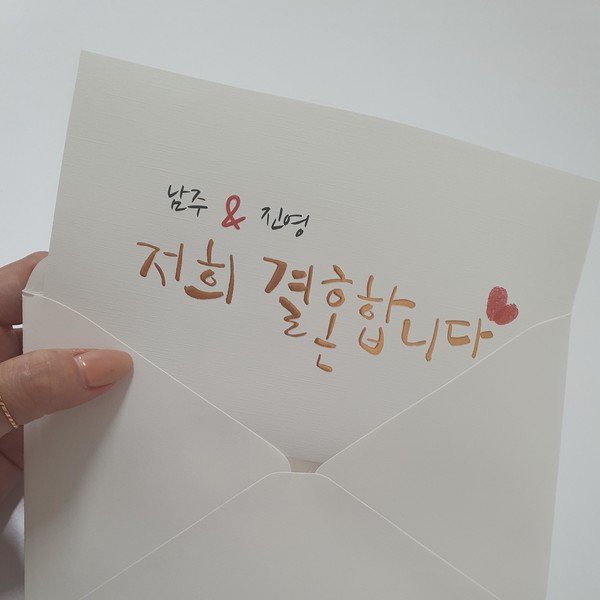 남주 & 진영
저희 결혼합니다